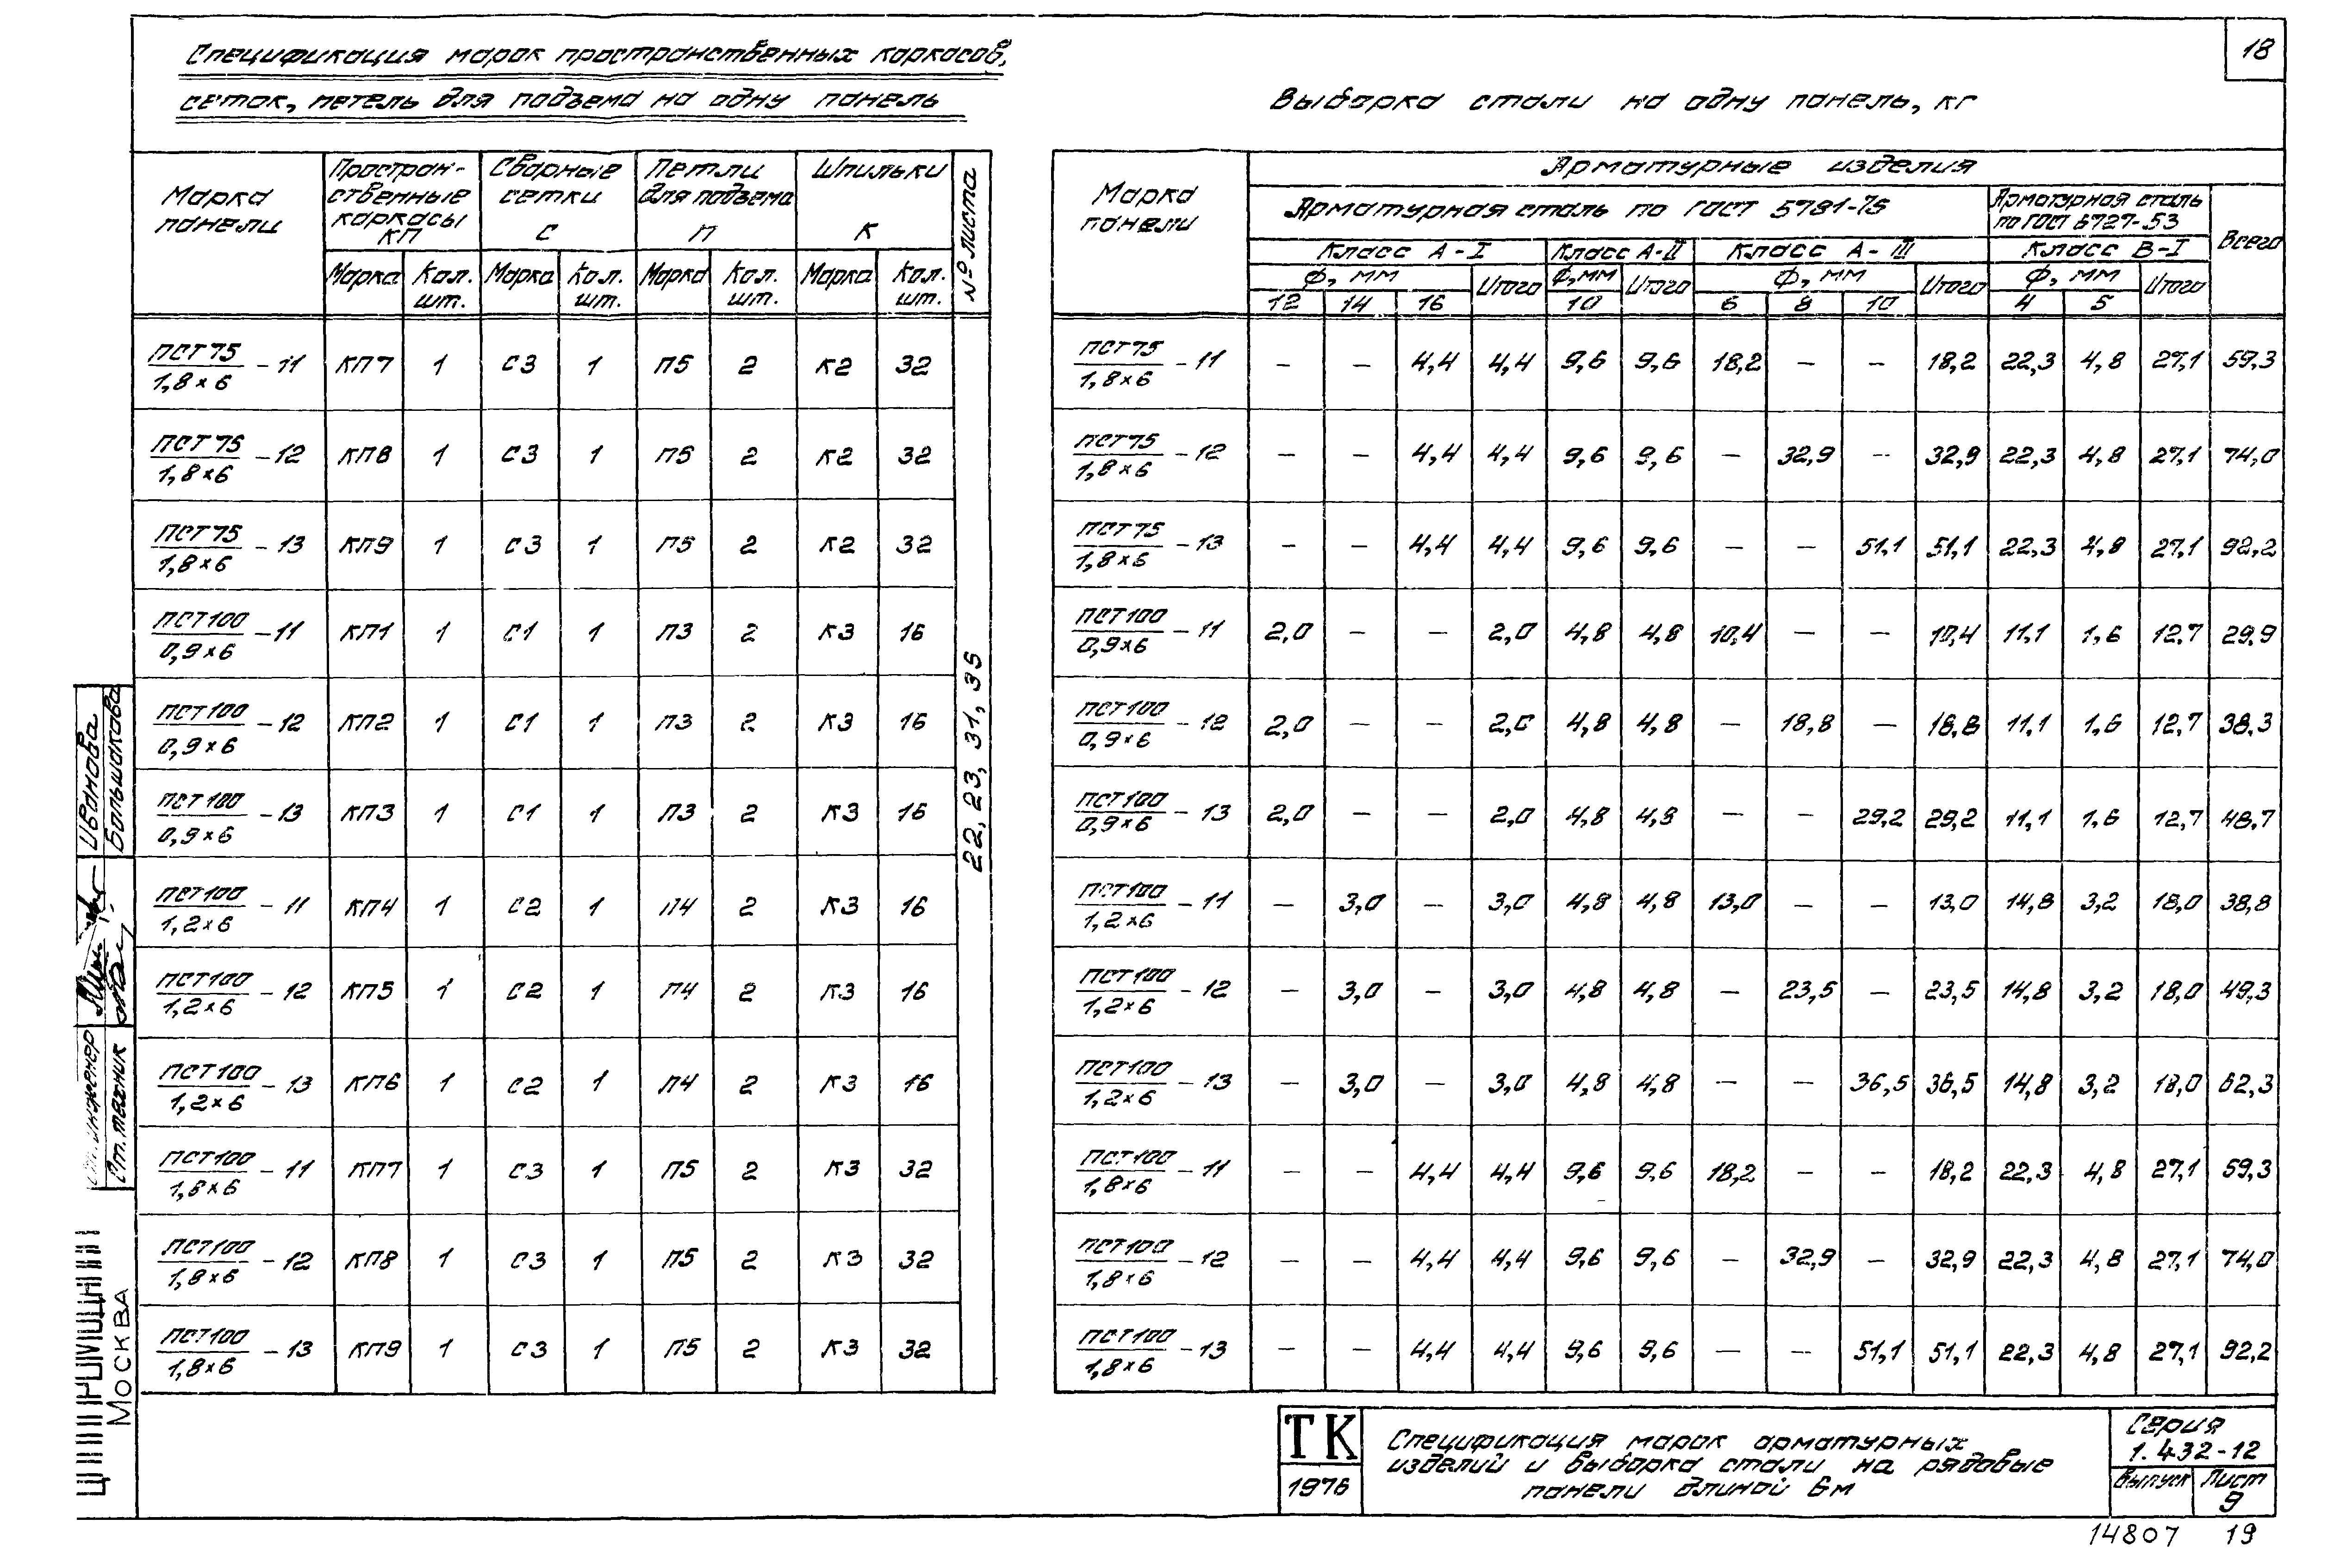 18
Спецификация марок пространственных каркасов,
сеток, петель для подъема на одну панель
Марка панели | Пространственные каркасы КП | Сварные сетки С | Петли для подъема П | Шпильки К | № листа
Марка | Кол. шт. | Марка | Кол. шт. | Марка | Кол. шт. | Марка | Кол. шт.
ПСТ75/1,8×6 -11 | КП7 | 1 | С3 | 1 | П5 | 2 | К2 | 32
ПСТ75/1,8×6 -12 | КП8 | 1 | С3 | 1 | П5 | 2 | К2 | 32
ПСТ75/1,8×6 -13 | КП9 | 1 | С3 | 1 | П5 | 2 | К2 | 32
ПСТ100/0,9×6 -11 | КП1 | 1 | С1 | 1 | П3 | 2 | К3 | 16
ПСТ100/0,9×6 -12 | КП2 | 1 | С1 | 1 | П3 | 2 | К3 | 16
ПСТ100/0,9×6 -13 | КП3 | 1 | С1 | 1 | П3 | 2 | К3 | 16
ПСТ100/1,2×6 -11 | КП4 | 1 | С2 | 1 | П4 | 2 | К3 | 16
ПСТ100/1,2×6 -12 | КП5 | 1 | С2 | 1 | П4 | 2 | К3 | 16
ПСТ100/1,2×6 -13 | КП6 | 1 | С2 | 1 | П4 | 2 | К3 | 16
ПСТ100/1,8×6 -11 | КП7 | 1 | С3 | 1 | П5 | 2 | К3 | 32
ПСТ100/1,8×6 -12 | КП8 | 1 | С3 | 1 | П5 | 2 | К3 | 32
ПСТ100/1,8×6 -13 | КП9 | 1 | С3 | 1 | П5 | 2 | К3 | 32
22, 23, 31, 35
Выборка стали на одну панель, кг
Марка панели | Арматурные изделия
Арматурная сталь по ГОСТ 5781-75 | Арматурная сталь по ГОСТ 6727-53 | Всего
Класс А-I | Класс А-II | Класс А-III | Класс В-I
Ф, мм | Итого | Ф, мм | Итого | Ф, мм | Итого | Ф, мм | Итого
12 | 14 | 16 | 10 | 6 | 8 | 10 | 4 | 5
ПСТ75/1,8×6 -11 | – | – | 4,4 | 4,4 | 9,6 | 9,6 | 18,2 | – | – | 18,2 | 22,3 | 4,8 | 27,1 | 59,3
ПСТ75/1,8×6 -12 | – | – | 4,4 | 4,4 | 9,6 | 9,6 | – | 32,9 | – | 32,9 | 22,3 | 4,8 | 27,1 | 74,0
ПСТ75/1,8×6 -13 | – | – | 4,4 | 4,4 | 9,6 | 9,6 | – | – | 51,1 | 51,1 | 22,3 | 4,8 | 27,1 | 92,2
ПСТ100/0,9×6 -11 | 2,0 | – | – | 2,0 | 4,8 | 4,8 | 10,4 | – | – | 10,4 | 11,1 | 1,6 | 12,7 | 29,9
ПСТ100/0,9×6 -12 | 2,0 | – | – | 2,0 | 4,8 | 4,8 | – | 18,8 | – | 18,8 | 11,1 | 1,6 | 12,7 | 38,3
ПСТ100/0,9×6 -13 | 2,0 | – | – | 2,0 | 4,8 | 4,8 | – | – | 29,2 | 29,2 | 11,1 | 1,6 | 12,7 | 48,7
ПСТ100/1,2×6 -11 | – | 3,0 | – | 3,0 | 4,8 | 4,8 | 13,0 | – | – | 13,0 | 14,8 | 3,2 | 18,0 | 38,8
ПСТ100/1,2×6 -12 | – | 3,0 | – | 3,0 | 4,8 | 4,8 | – | 23,5 | – | 23,5 | 14,8 | 3,2 | 18,0 | 49,3
ПСТ100/1,2×6 -13 | – | 3,0 | – | 3,0 | 4,8 | 4,8 | – | – | 36,5 | 36,5 | 14,8 | 3,2 | 18,0 | 62,3
ПСТ100/1,8×6 -11 | – | – | 4,4 | 4,4 | 9,6 | 9,6 | 18,2 | – | – | 18,2 | 22,3 | 4,8 | 27,1 | 59,3
ПСТ100/1,8×6 -12 | – | – | 4,4 | 4,4 | 9,6 | 9,6 | – | 32,9 | – | 32,9 | 22,3 | 4,8 | 27,1 | 74,0
ПСТ100/1,8×6 -13 | – | – | 4,4 | 4,4 | 9,6 | 9,6 | – | – | 51,1 | 51,1 | 22,3 | 4,8 | 27,1 | 92,2
инженер Иванова
Ст. техник Большакова
МОСКВА
ТК
1976
Спецификация марок арматурных
изделий и выборка стали на рядовые
панели длиной 6м
Серия
1.432-12
Выпуск
Лист
9
14807 19